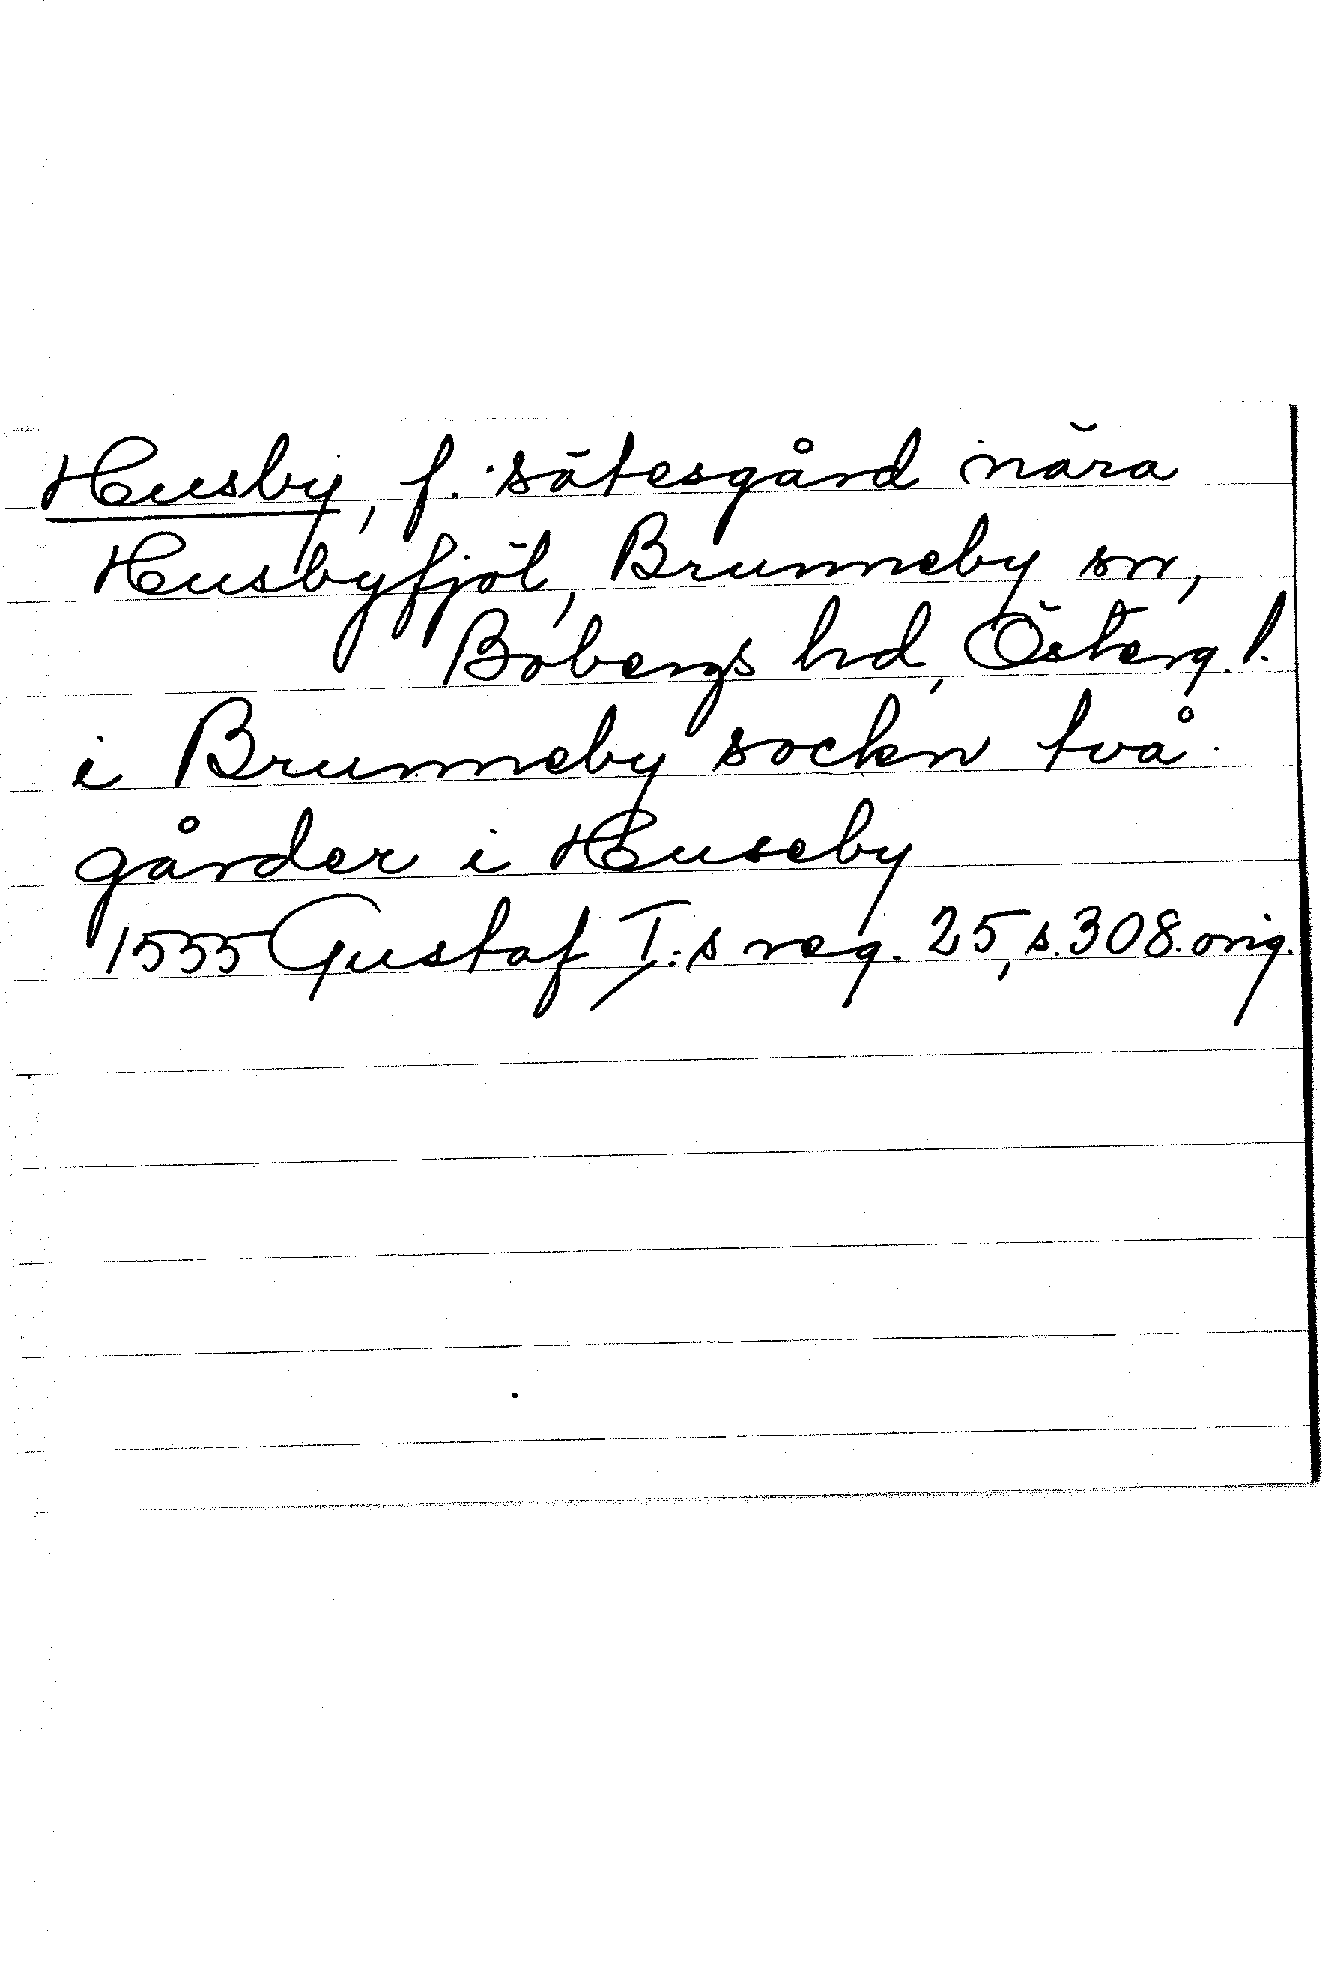 Husby, f. sätesgård nära
Husbyfjöl, Brunneby sn,
Bobergs hd, Österg. l.
i Brunneby sockn två
gårder i Huseby
1555 Gustaf I:s reg. 25, s. 308. orig.